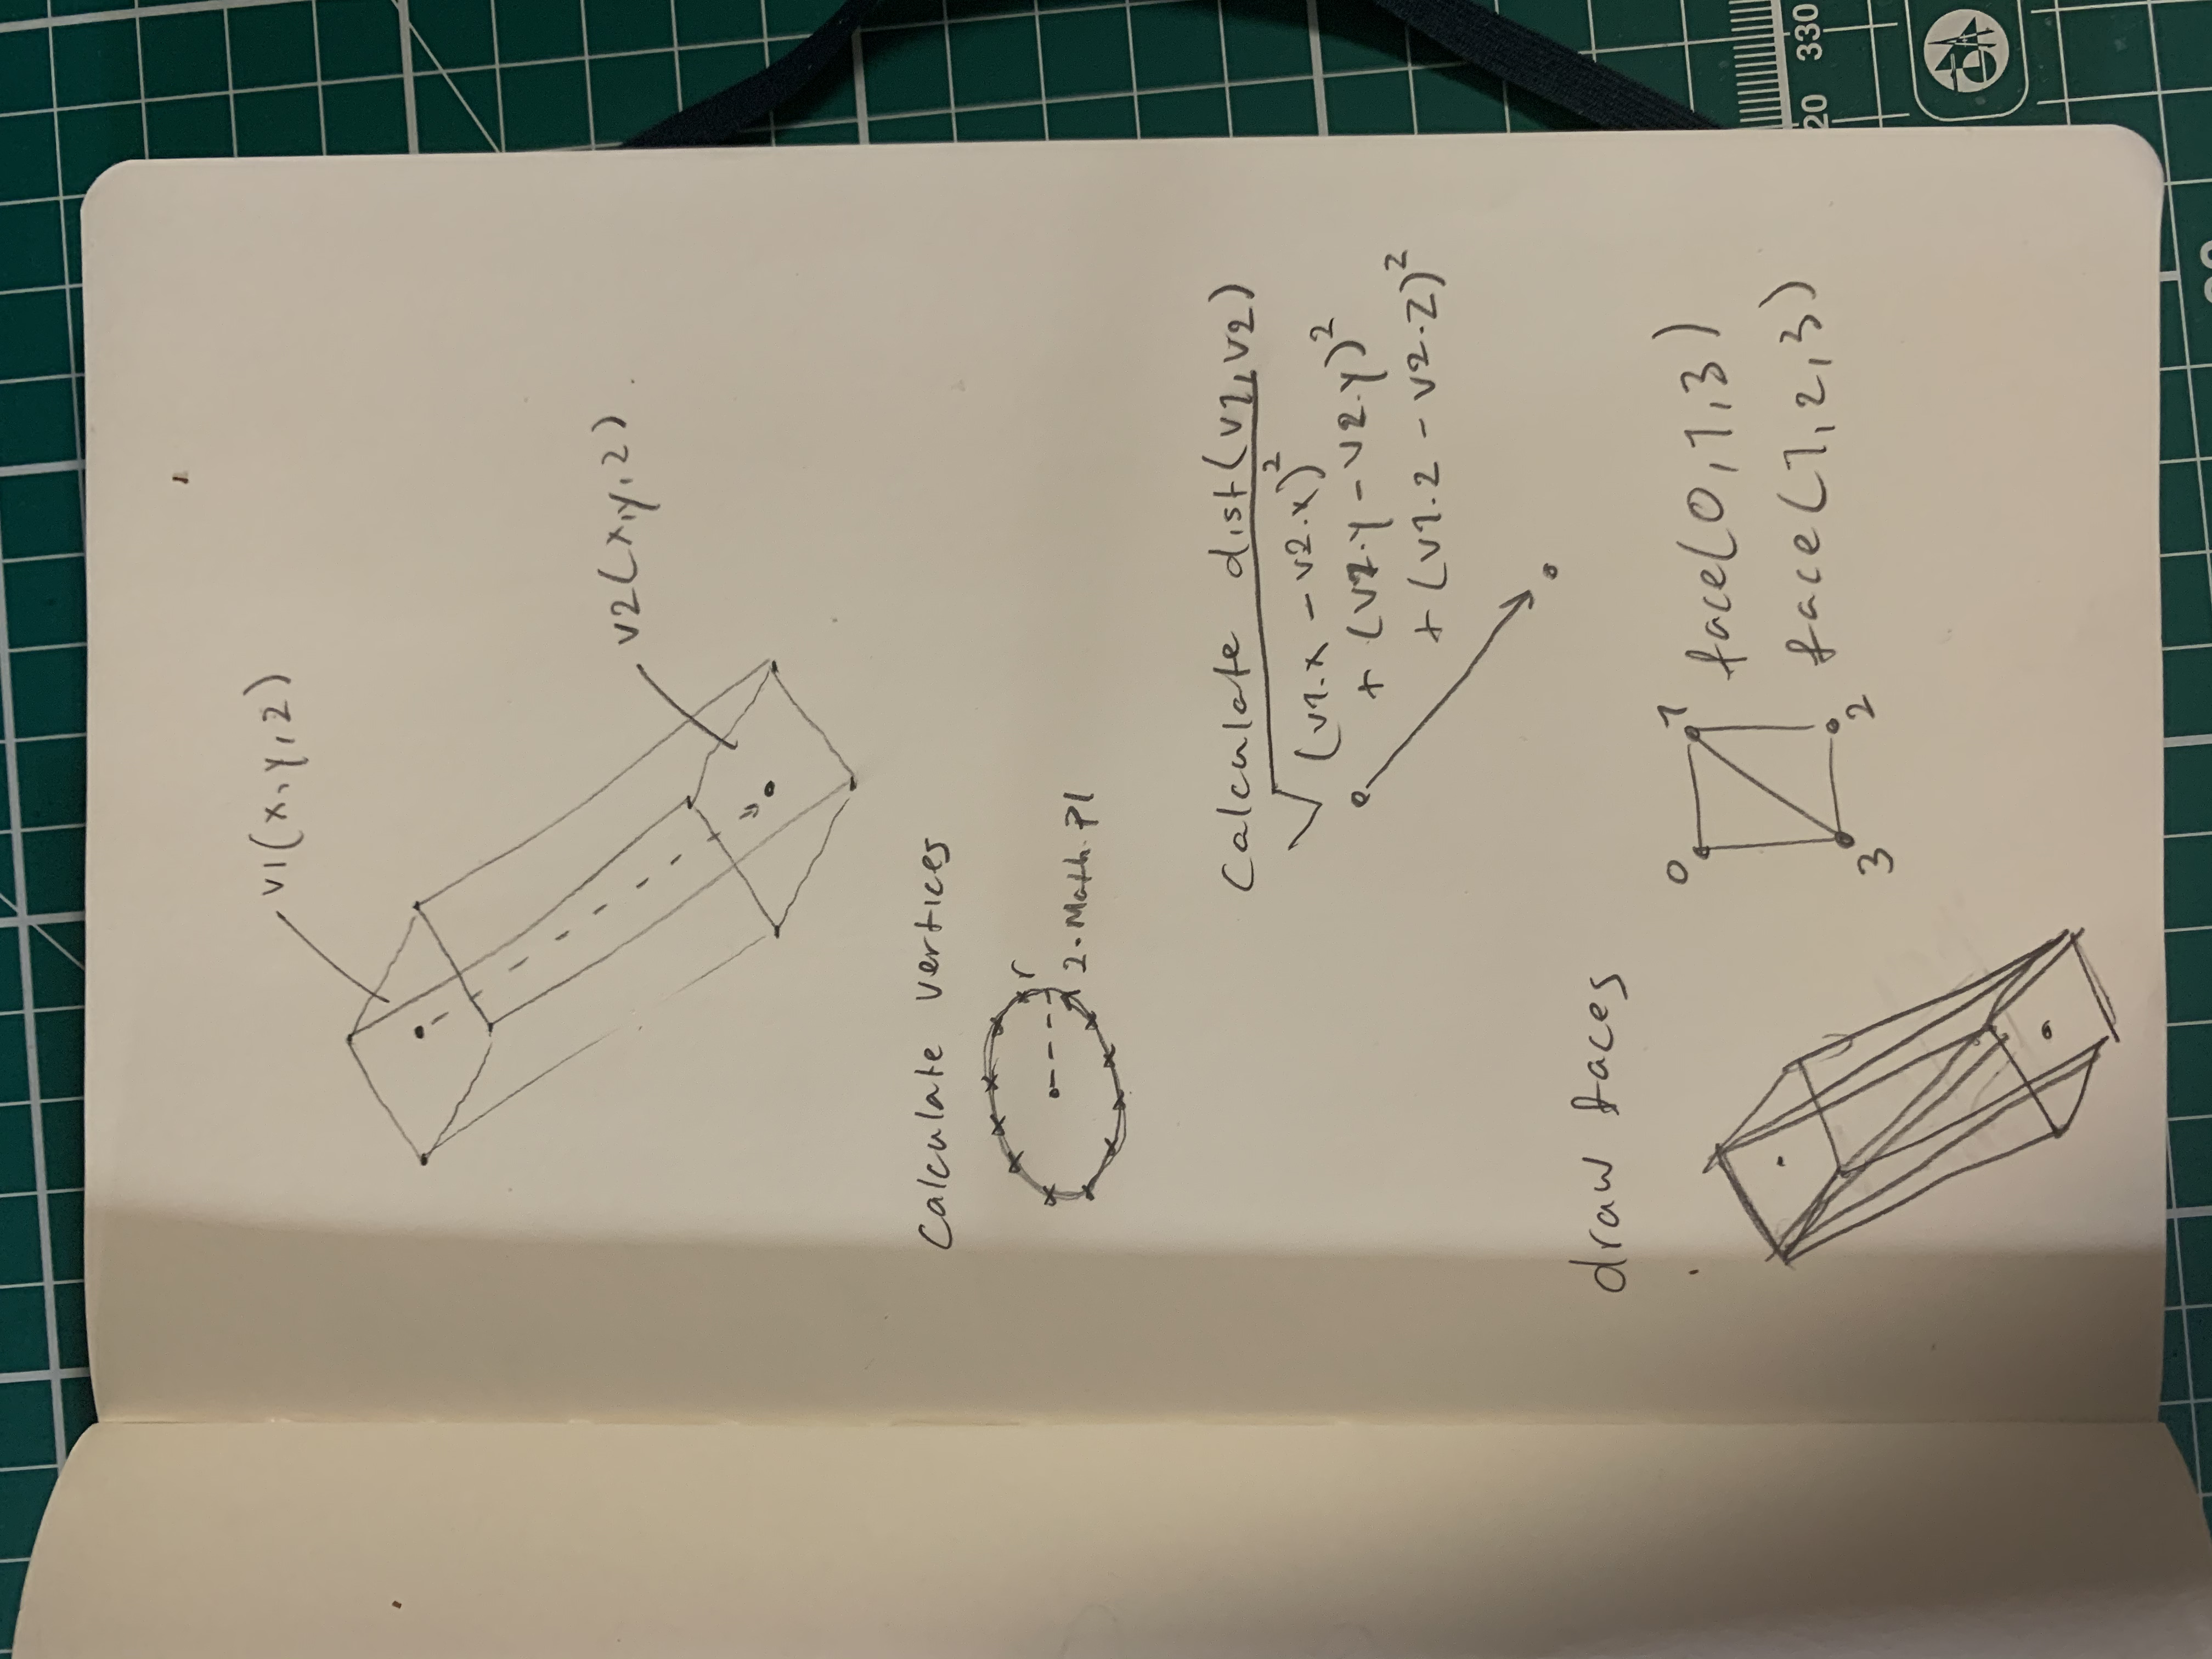 v1(x,y,z)
v2(x,y,z)
Calculate vertices
r
2·Math.PI
Calculate dist(v1,v2)
√(v1.x - v2.x)²
+ (v1.y - v2.y)²
+ (v1.z - v2.z)²
draw faces
0 1
face(0,1,3)
face(1,2,3)
3 2
20 330